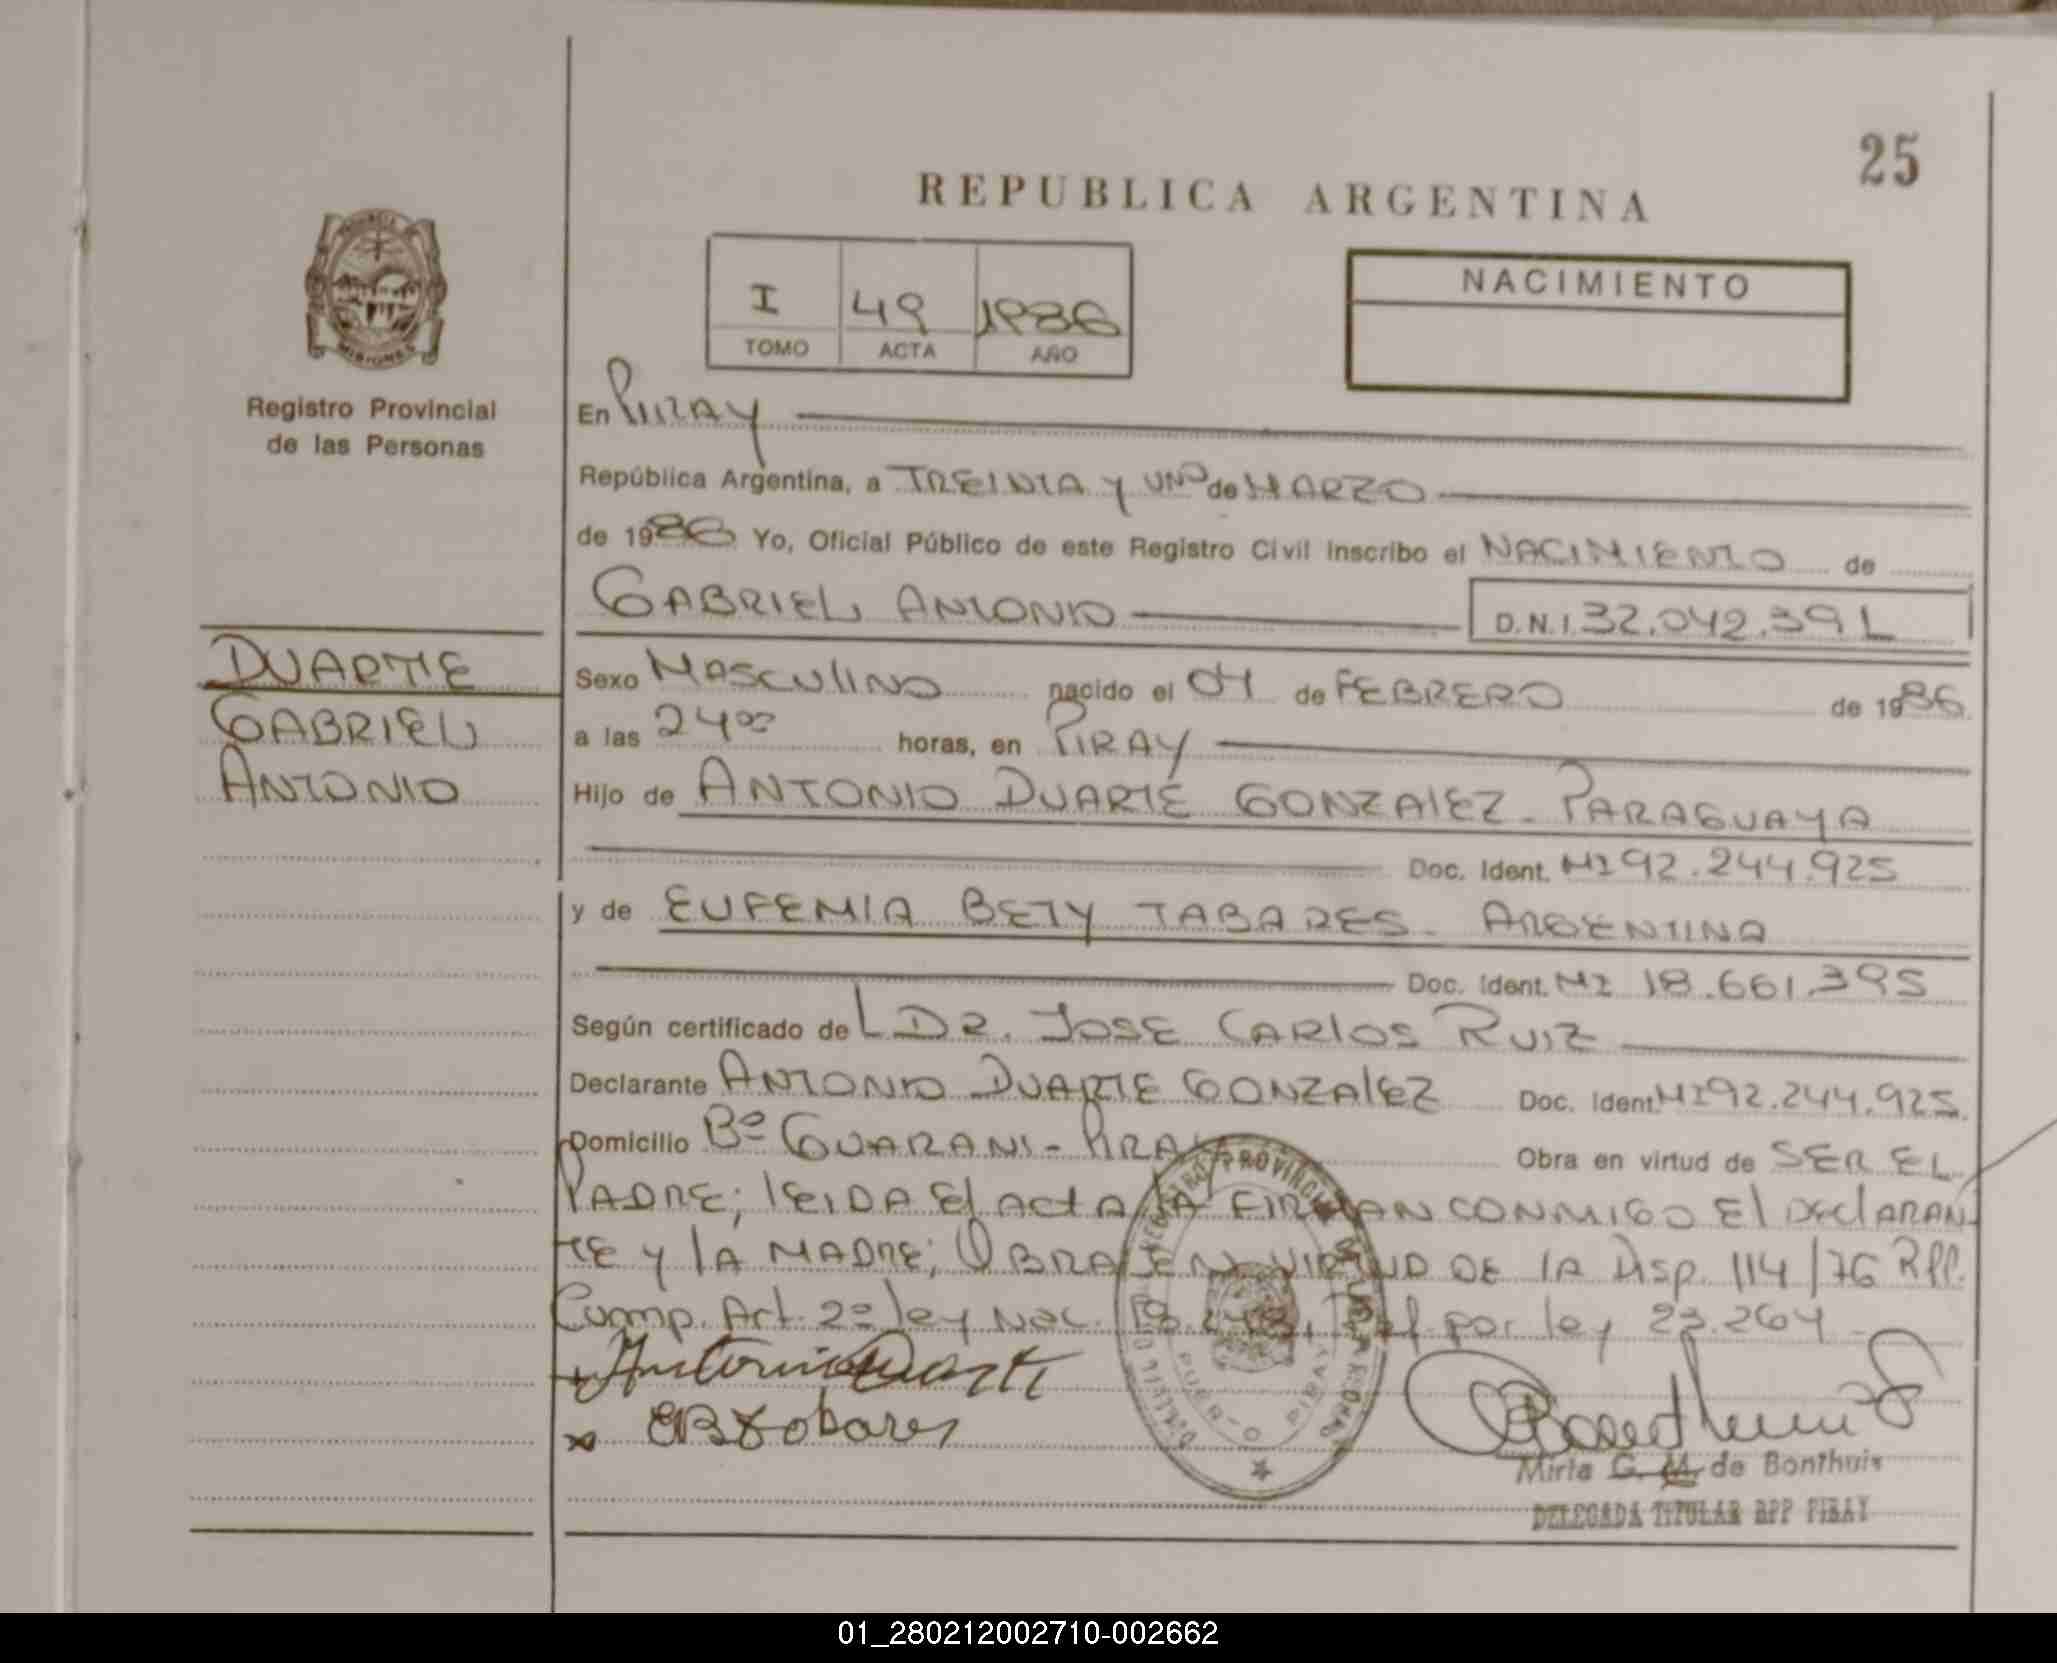 25
REPUBLICA ARGENTINA
PROVINCIA
MISIONES
Registro Provincial
de las Personas
I 49 1986
TOMO ACTA AÑO
NACIMIENTO
En PIRAY
República Argentina, a TREINTA Y UNO de MARZO
de 1986 Yo, Oficial Público de este Registro Civil inscribo el NACIMIENTO de
GABRIEL ANTONIO D.N.I. 32.042.391
DUARTE
GABRIEL
ANTONIO
Sexo MASCULINO nacido el 04 de FEBRERO de 1986
a las 2400 horas, en PIRAY
Hijo de ANTONIO DUARTE GONZALEZ - PARAGUAYA
Doc. Ident. MI 92.244.925
y de EUFEMIA BETY TABARES - ARGENTINA
Doc. Ident. MI 18.661.395
Según certificado de L DR. JOSE CARLOS RUIZ
Declarante ANTONIO DUARTE GONZALEZ Doc. Ident. MI 92.244.925
Domicilio Bº GUARANI - PIRAY Obra en virtud de SER EL
PADRE; LEIDA El ACTA LA FIRMAN CONMIGO El DEClARAN-
TE y lA MADRE; OBRA EN VIRTUD DE lA Disp. 114/76 RPP.
Cump. Art. 2º ley Nac. 18.248, por ley 23.264
Antonio Duarte
EB Tabares
REGISTRO PROVINCIAL DE LAS PERSONAS
PUERTO PIRAY
Mirta G. M. de Bonthuis
DELEGADA TITULAR RPP PIRAY
01_280212002710-002662